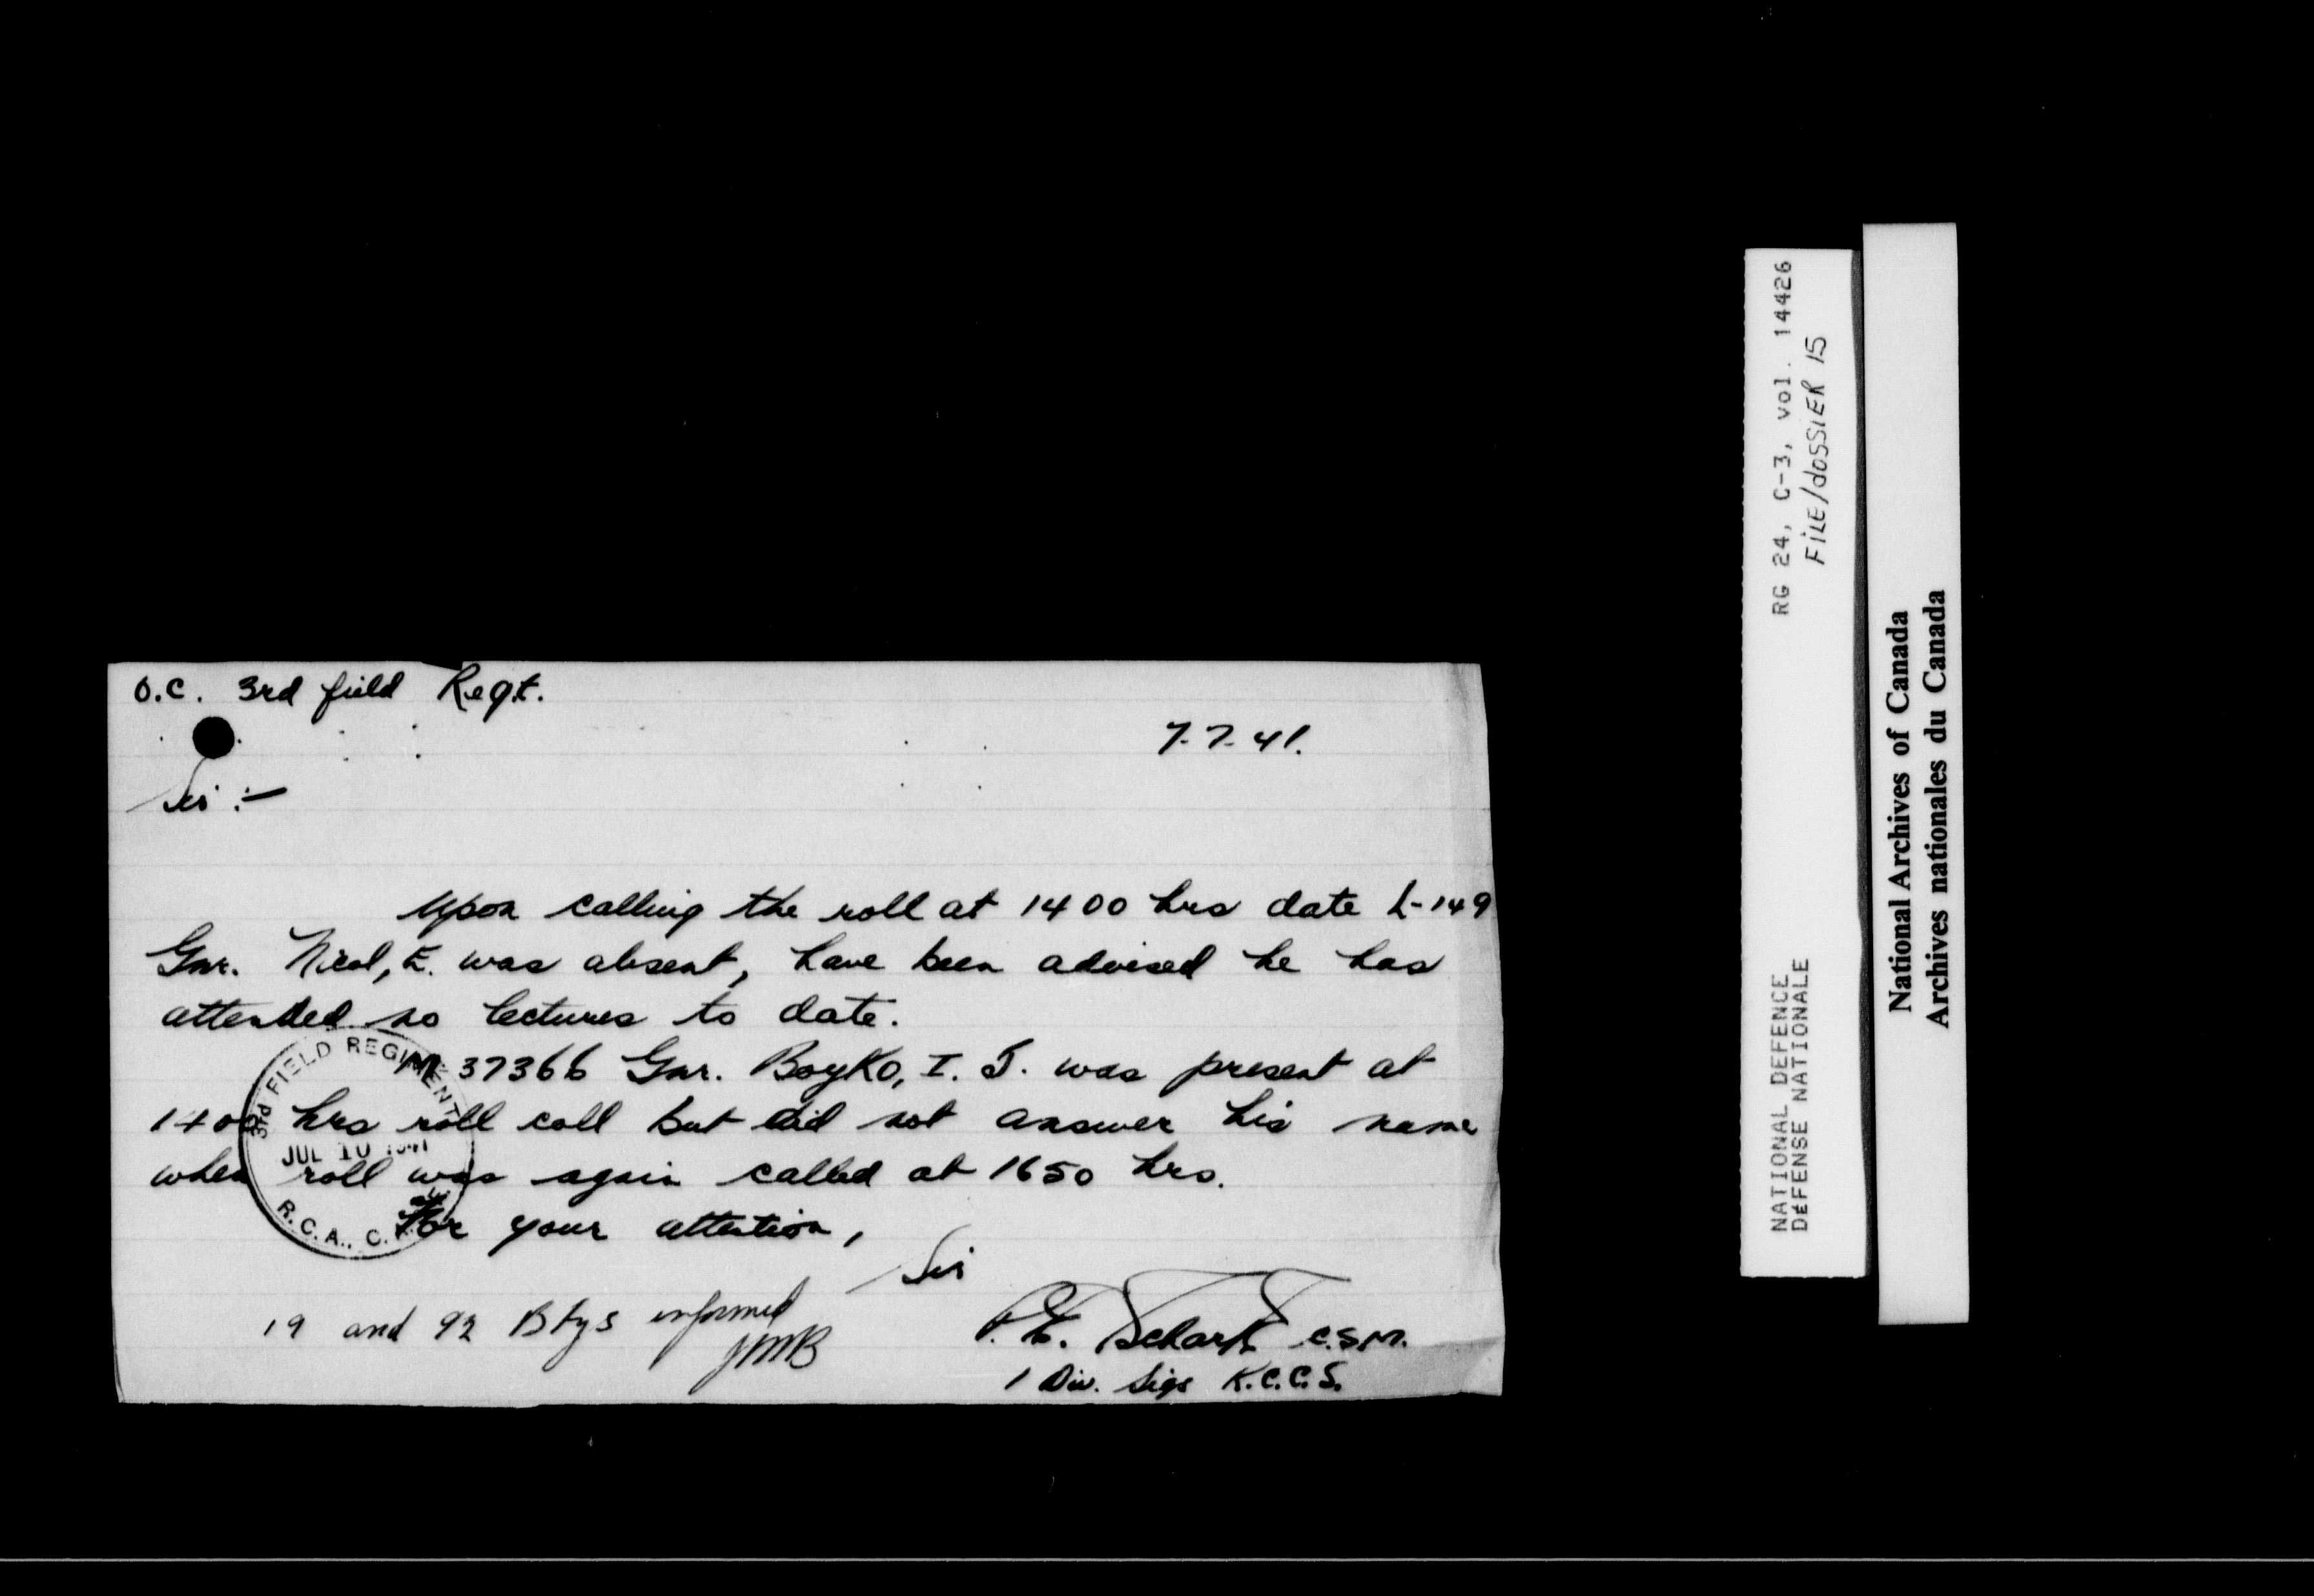 O.C. 3rd field Regt.
7-7-41.
Sir :-
Upon calling the roll at 1400 hrs date L-149
Gnr. Nicol, E. was absent, have been advised he has
attended no lectures to date.
M 37366 Gnr. Boyko, I. J. was present at
1400 hrs roll call but did not answer his name
when roll was again called at 1650 hrs.
For your attention,
Sir
19 and 92 Btys informed
JMB
C.S.M.
1 Div. Sigs K.C.C.S.
3rd FIELD REGIMENT
JUL 10 1941
R.C.A., C.
RG 24, C-3, vol. 14426
FiLE/dOSSiER 15
NATIONAL DEFENCE
DÉFENSE NATIONALE
National Archives of Canada
Archives nationales du Canada